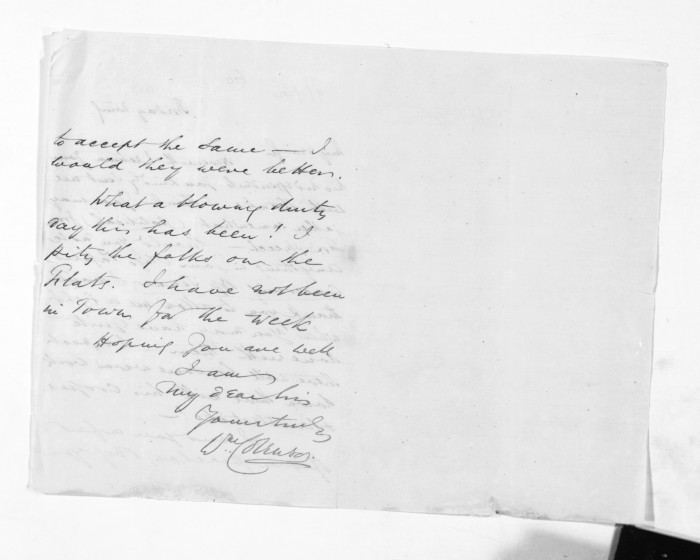 to accept the same — I
would they were better.
What a blowing dusty
day this has been! I
pity the folks on the
Flats. I have not been
in Town for the week
Hoping you are well
I am
My dear Sir
Yours truly
Wm Colenso.